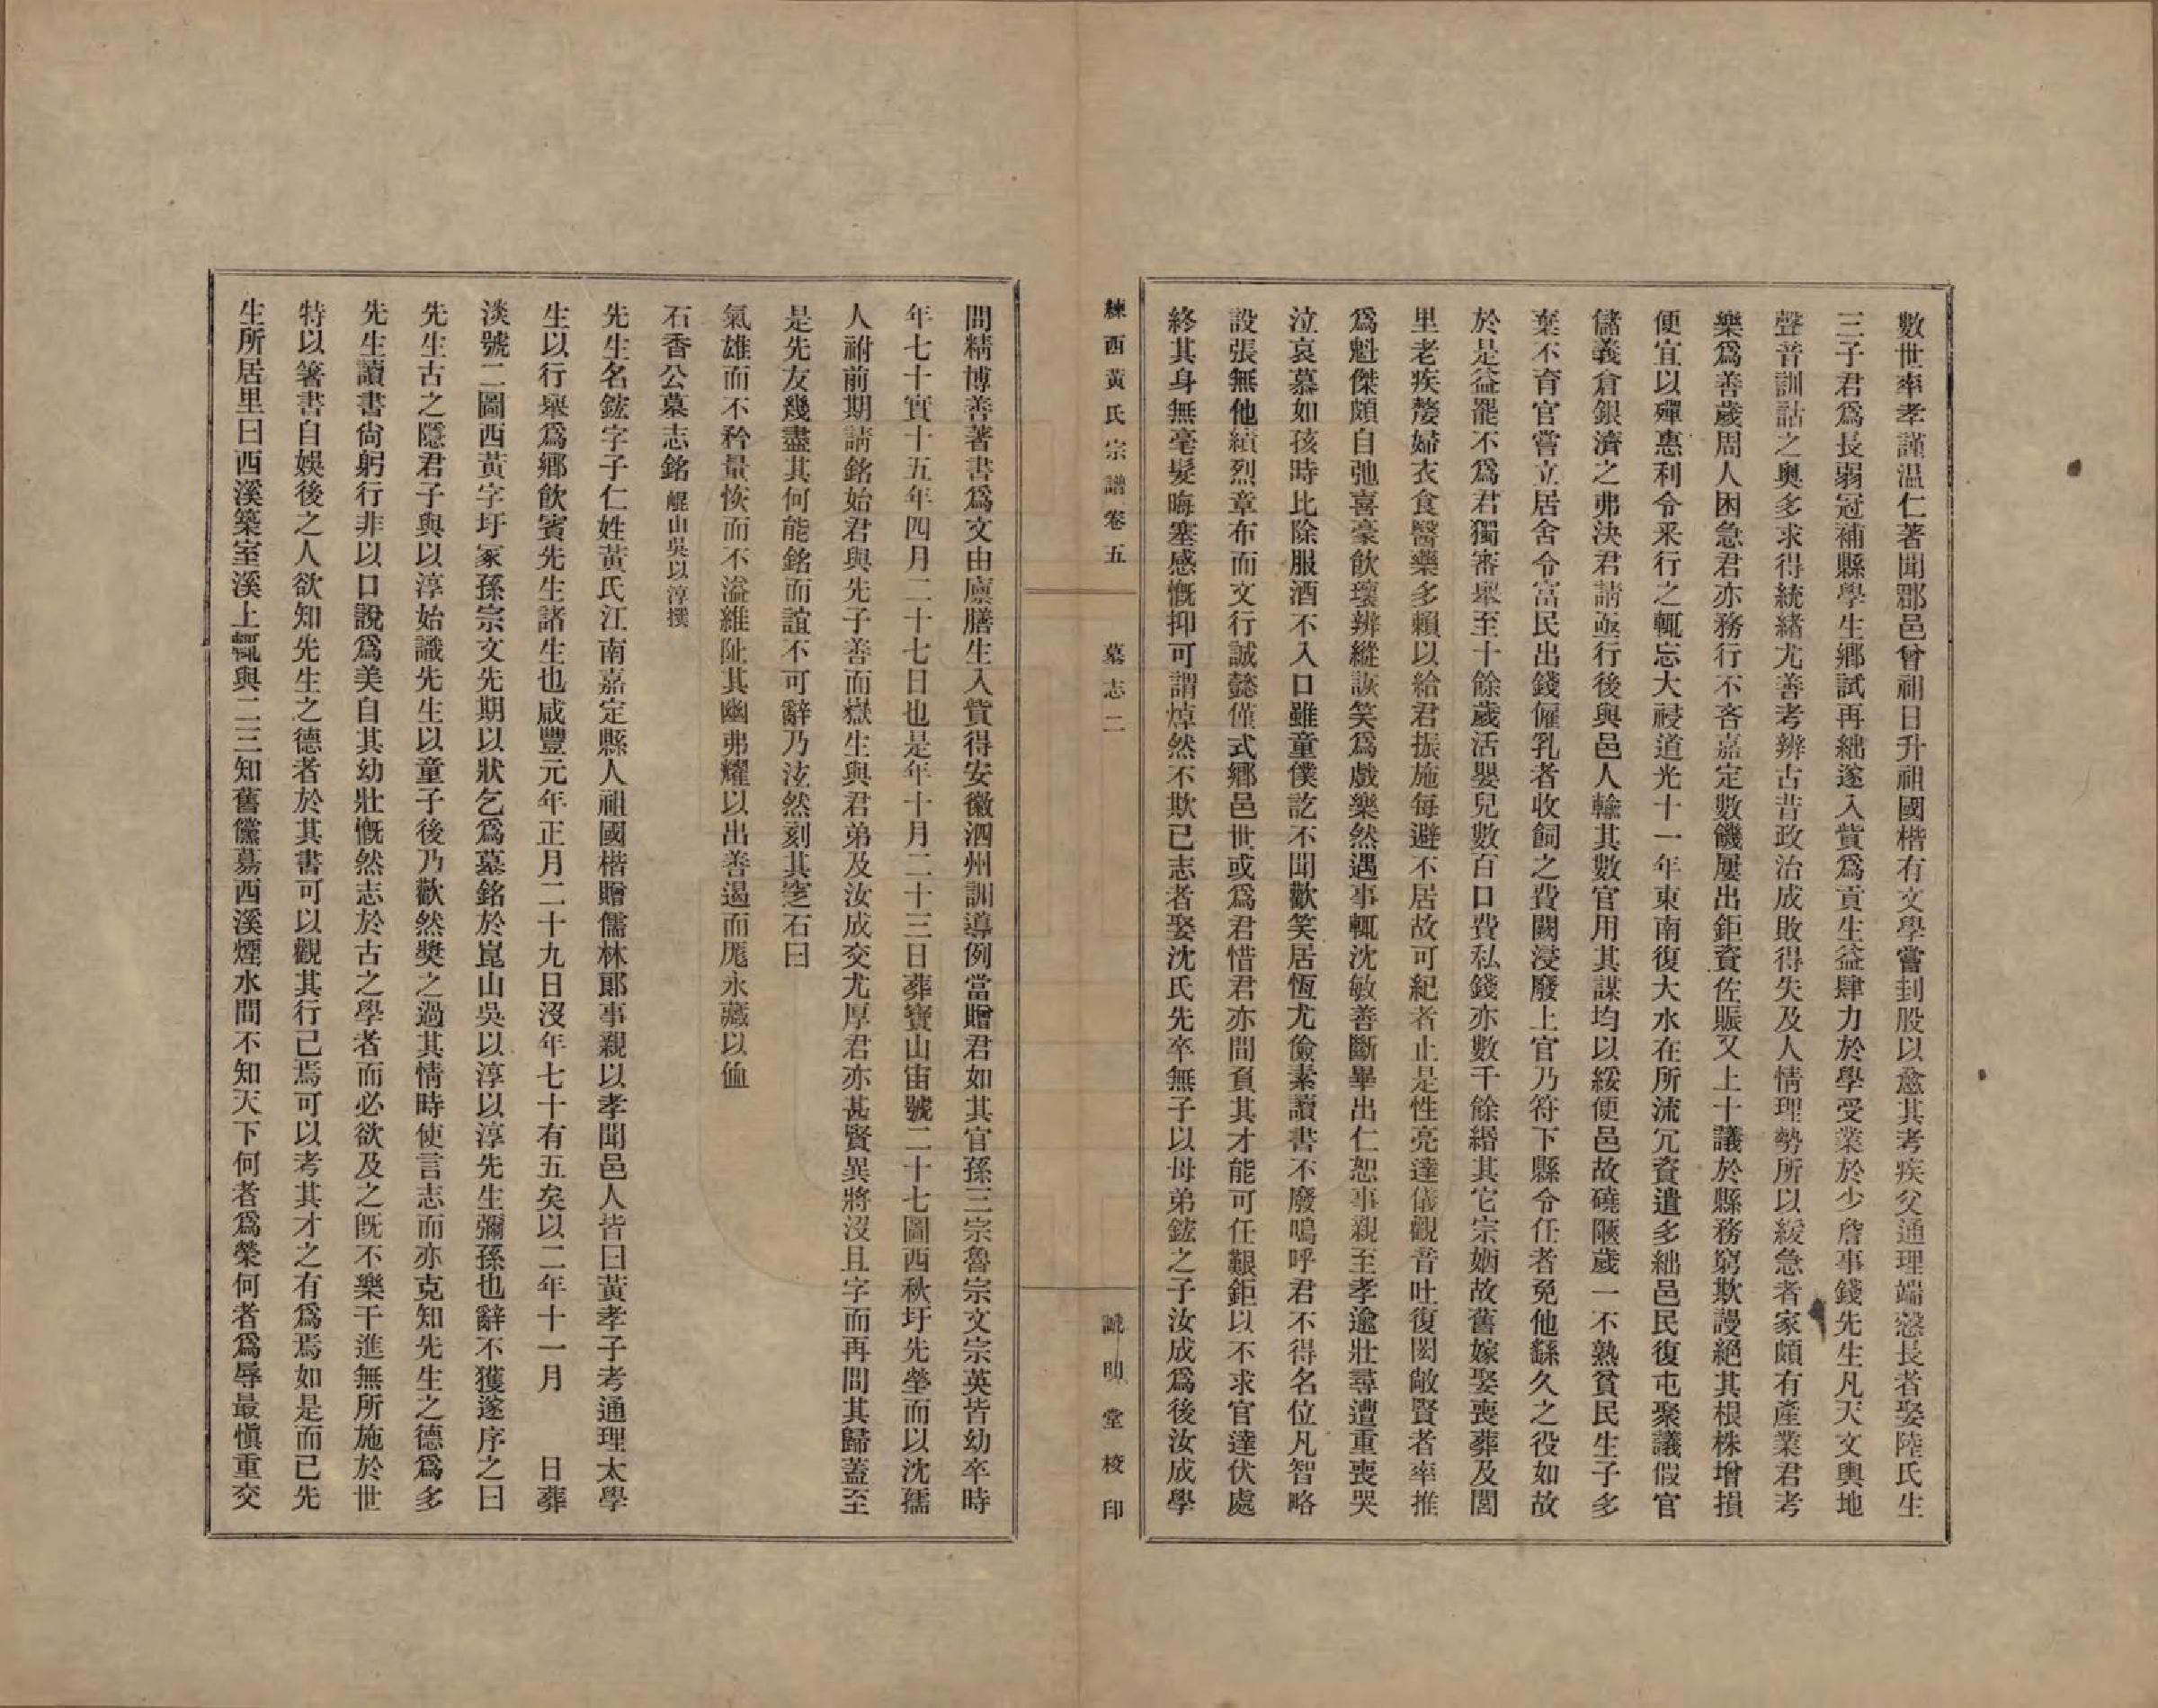 數世率孝謹温仁著聞郡邑曾祖日升祖國楷有文學嘗刲股以愈其考疾父通理端愨長者娶陸氏生
三子君爲長弱冠補縣學生鄉試再絀遂入貲爲貢生益肆力於學受業於少詹事錢先生凡天文輿地
聲音訓詁之奥多求得統緒尤善考辨古昔政治成敗得失及人情理勢所以緩急者家頗有產業君考
樂爲善歲周人困急君亦務行不吝嘉定數饑屢出鉅資佐賑又上十議於縣務窮欺謾絕其根株增損
便宜以殫惠利令釆行之輒忘大祲道光十一年東南復大水在所流冗資遣多絀邑民復屯聚議假官
儲義倉銀濟之弗決君請亟行後與邑人輸其數官用其謀均以綏便邑故磽陿歲一不熟貧民生子多
棄不育官嘗立居舍令富民出錢僱乳者收飼之費闕浸廢上官乃符下縣令任者免他繇久之役如故
於是益罷不爲君獨審舉至十餘歲活嬰兒數百口費私錢亦數千餘緡其它宗姻故舊嫁娶喪葬及閭
里老疾嫠婦衣食醫藥多賴以給君振施每避不居故可紀者止是性亮達儀觀音吐復閎敞賢者率推
爲魁傑頗自弛喜豪飲壞辨縱詼笑爲戲樂然遇事輒沈敏善斷畢出仁恕事親至孝逾壯尋遭重喪哭
泣哀慕如孩時比除服酒不入口雖童僕訖不聞歡笑居恆尤儉素讀書不廢嗚呼君不得名位凡智略
設張無他績烈章布而文行誠懿僅式鄉邑世或爲君惜君亦間負其才能可任艱鉅以不求官達伏處
終其身無毫髮晦塞感慨抑可謂焯然不欺已志者娶沈氏先卒無子以母弟鋐之子汝成爲後汝成學
練西黃氏宗譜卷五 墓志二 誠明堂校印
問精博善著書爲文由廩膳生入貲得安徽泗州訓導例當贈君如其官孫三宗魯宗文宗英皆幼卒時
年七十實十五年四月二十七日也是年十月二十三日葬寶山宙號二十七圖西秋圩先塋而以沈孺
人祔前期請銘始君與先子善而嶽生與君弟及汝成交尤厚君亦甚賢異將沒且字而再問其歸蓋至
是先友幾盡其何能銘而誼不可辭乃泫然刻其窆石曰
氣雄而不矜量恢而不溢維阯其幽弗耀以出善遏而厖永藏以侐
石香公墓志銘 崐山吳以淳撰
先生名鋐字子仁姓黃氏江南嘉定縣人祖國楷贈儒林郎事親以孝聞邑人皆曰黃孝子考通理太學
生以行舉爲鄉飲賓先生諸生也咸豐元年正月二十九日沒年七十有五矣以二年十一月 日葬
淡號二圖西黃字圩冢孫宗文先期以狀乞爲墓銘於崑山吳以淳以淳先生彌孫也辭不獲遂序之曰
先生古之隱君子與以淳始識先生以童子後乃歡然奬之過其情時使言志而亦克知先生之德爲多
先生讀書尙躬行非以口說爲美自其幼壯慨然志於古之學者而必欲及之旣不樂干進無所施於世
特以箸書自娛後之人欲知先生之德者於其書可以觀其行己焉可以考其才之有爲焉如是而已先
生所居里曰西溪築室溪上輒與二三知舊儻蕩西溪煙水間不知天下何者爲榮何者爲辱最愼重交